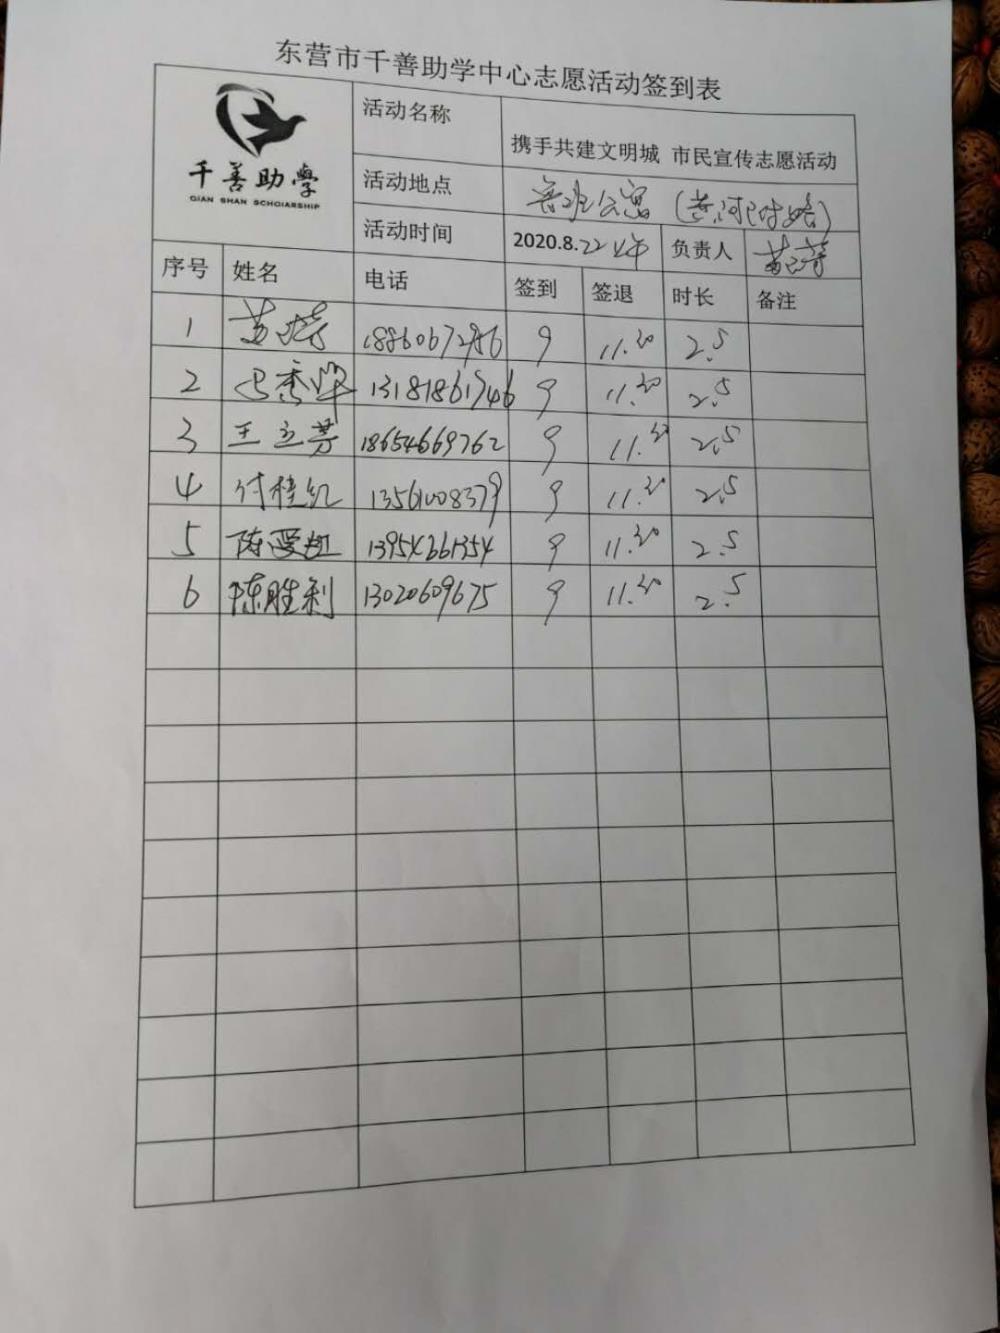 东营市千善助学中心志愿活动签到表
千善助學
QIAN SHAN SCHOIARSHIP
活动名称 携手共建文明城 市民宣传志愿活动
活动地点 鲁班公寓
活动时间 2020.8.22 上午 负责人
序号 姓名 电话 签到 签退 时长 备注
1 9 11.30 2.5
2 13181861746 9 11.30 2.5
3 王立芳 18654669762 9 11.30 2.5
4 付桂红 13561008379 9 11.30 2.5
5 陈爱红 13954661354 9 11.30 2.5
6 陈胜利 13020609675 9 11.30 2.5